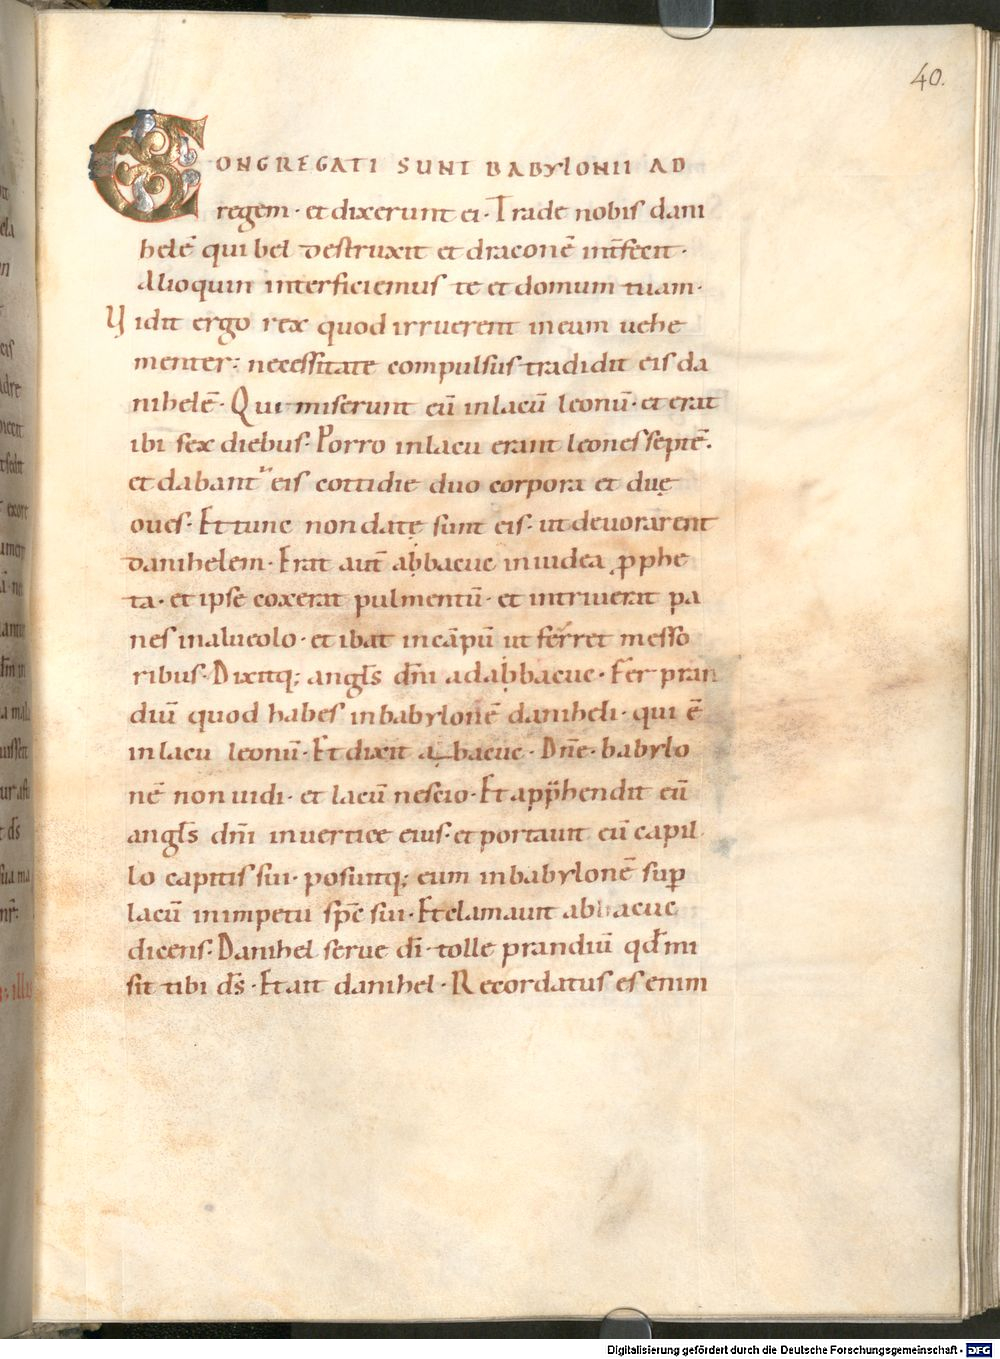 40.
CONGREGATI SUNT BABYLONII AD
regem · et dixerunt ei · Trade nobis dani
helē qui bel destruxit et draconē int̄fecit ·
Alioquin interficiemus te et domum tuam ·
Vidit ergo rex quod irruerent in eum uehe
menter; necessitate compulsus tradidit eis da
nihelē · Qui miserunt eū in lacū leonū · et erat
ibi sex diebus · Porro in lacu erant leones septē ·
et dabant eis cottidie duo corpora et duę
oues · Et tunc non datę sunt eis · ut deuorarent
danihelem · Erat aut̄ abbacuc in iudea pphe
ta · et ipse coxerat pulmentū · et intriuerat pa
nes in alueolo · et ibat in cāpū ut ferret messo
ribus · Dixitq; angl̄s dn̄i ad abbacuc · Fer pran
diū quod habes in babylonē daniheli · qui ē
in lacu leonū · Et dixit abbacuc · Dn̄e · babylo
nē non uidi · et lacū nescio · Et apphendit eū
angl̄s dn̄i in uertice eius · et portauit eū capil
lo capitis sui · posuitq; eum in babylonē sup
lacū in impetu sp̄c sui · Et clamauit abbacuc
dicens · Danihel serue dī · tolle prandiū qđ mi
sit tibi d̄s · Et ait danihel · Recordatus es enim
Digitalisierung gefördert durch die Deutsche Forschungsgemeinschaft - DFG